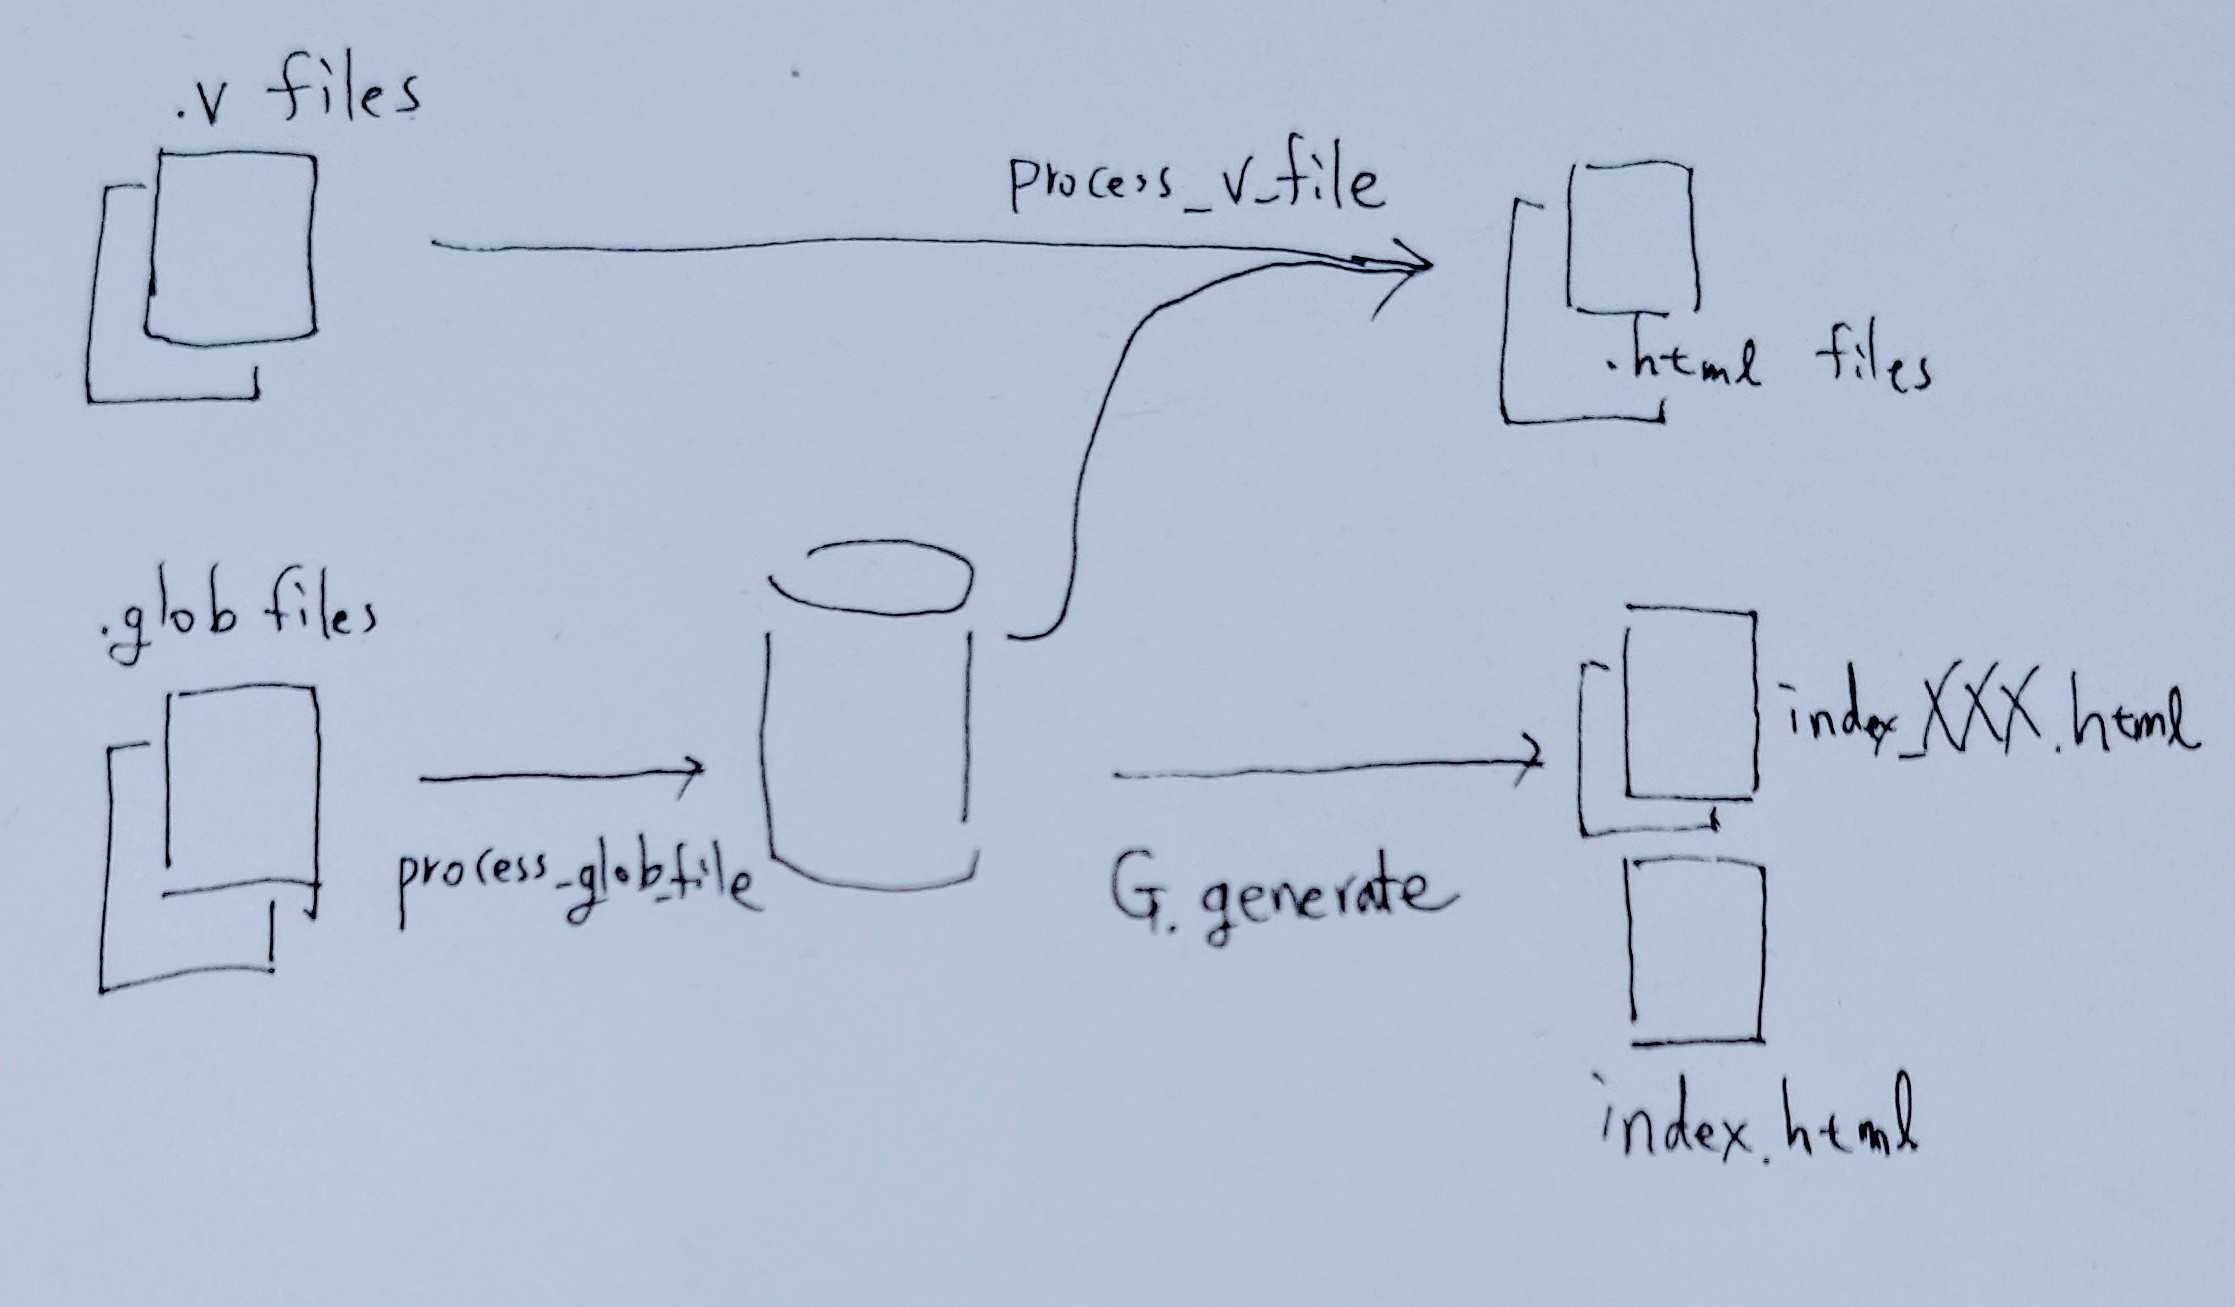 .v files
process_v_file
.html files
.glob files
process_glob_file
G.generate
index_XXX.html
index.html